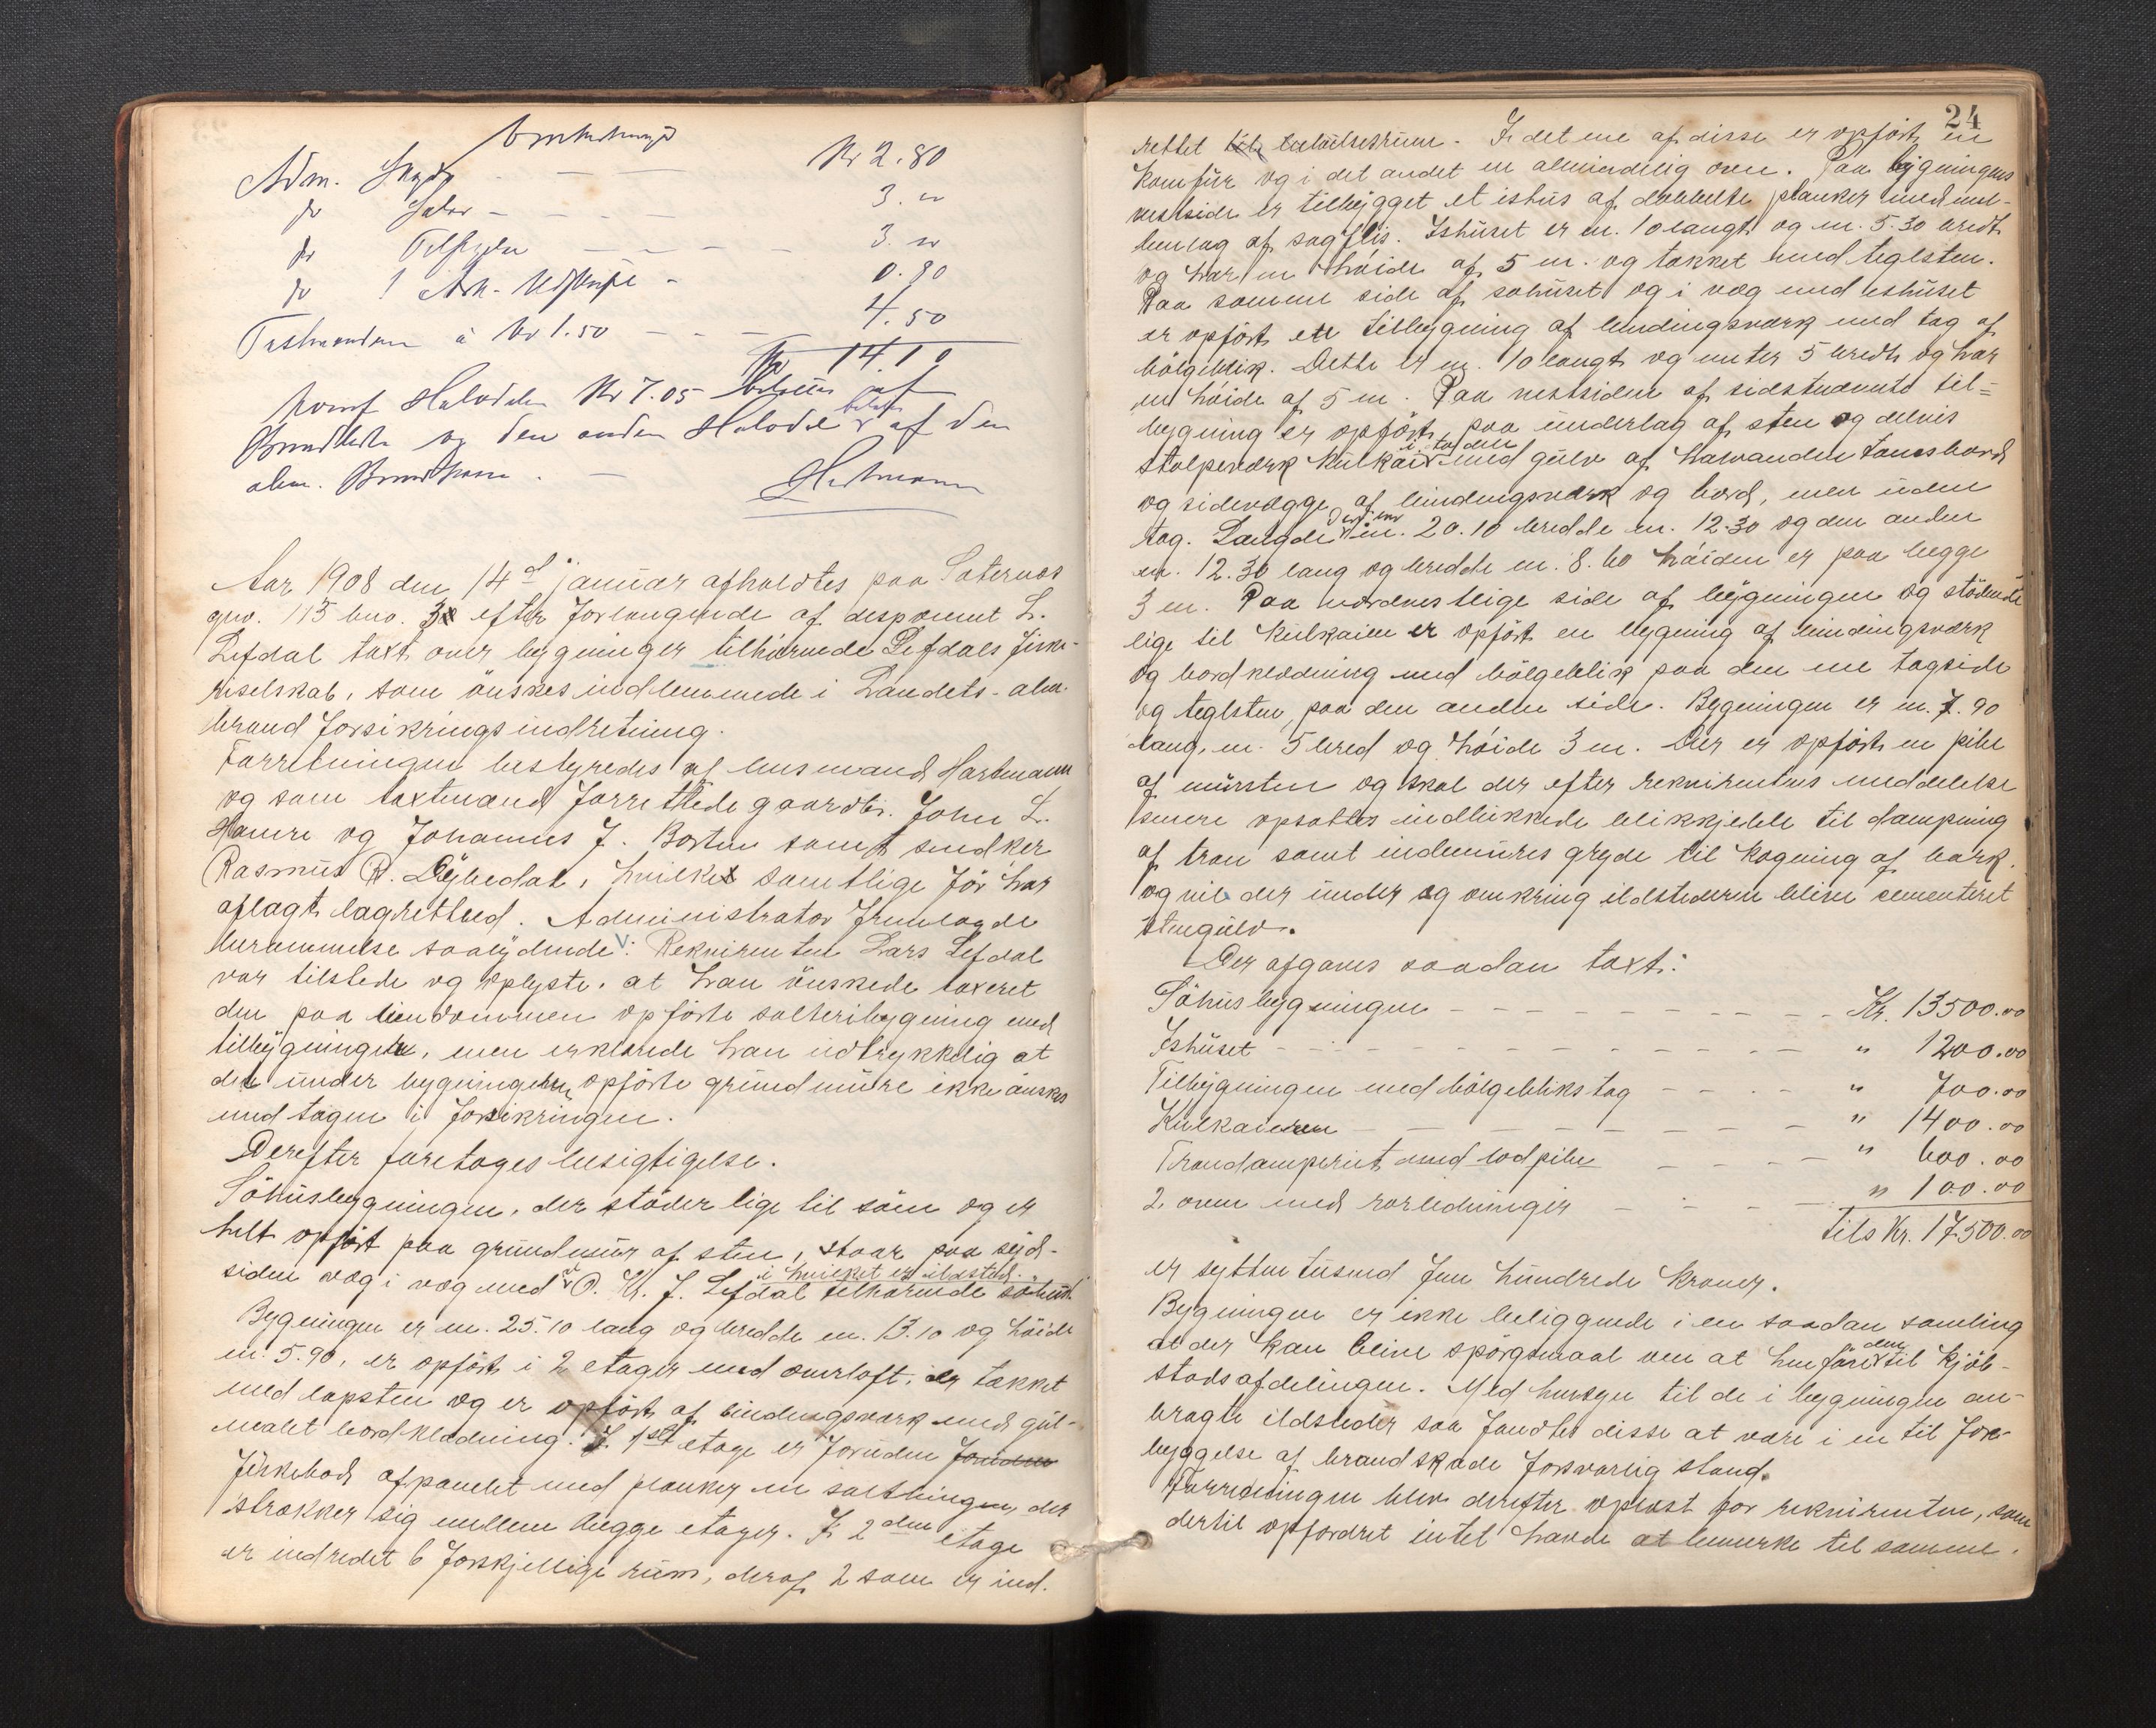 Adm. Skyds - - - Kr 2.80
do Salær - - - 3. "
do
do 1 Ark. Udskrift - 0.80
Taxtmændene à Kr 1.50 - - - 4.50
Kr 14.10
hvoraf Halvdelen Kr 7.05 betales af
og den anden Halvdel betales af den
alm. Brandkasse.
Hartmann
Aar 1908 den 14de januar afholdtes paa Sæternes
gno. 115 bno. 3 efter forlangende af disponent L.
Lefdal taxt over bygninger tilhörende Lefdals fiske-
riselskab, som önskes indlemmede i Landets alm.
brand forsikringsindretning.
Forretningen bestyredes af lensmand Hartmann
og som taxtmænd forrettede gaardbr. John L.
Hamre og Johannes J. Borten samt snedker
Rasmus R. Dybedal, hvilke samtlige för har
aflagt lagretteed. Administrator fremlagde
berammelse saalydende V: Rekvirenten Lars Lefdal
var tilstede og oplyste, at han önskede taxeret
den paa eiendommen opförte salteribygning med
tilbygninger, men erklærede han udtrykkelig at
den under bygningerne opförte grundmure ikke önskes
medtagen i forsikringen.
Derefter foretoges besigtigelse.
Söhusbygningen, der stöder lige til söen og er
helt opfört paa grundmur af sten, staar paa syd-
siden væg i væg med et O. K. J. Lefdal tilhörende söhus i hvilket er ildsted.
Bygningen er m. 25.10 lang og bredde m. 13.10 og höide
m. 5.90, er opfört i 2 etager med overloft, er tækket
med lapsten og er opfört af bindingsværk med gul-
malet bordklædning. I 1ste etage er foruden
fiskebod afpanelet med planker en saltbinge, der
strækker sig mellem begge etager. I 2den etage
er indredet 6 forskjellige rum, deraf 2 som er ind-
24
rettet til beboelsesrum. I det ene af disse er opfört en
komfur og i det andet en almindelig oven. Paa bygningens
vestside er tilbygget et ishus af dobbelte planker med mel-
lemlag af sagflis. Ishuset er m. 10 langt og m. 5.30 bredt
og har en höide af 5 m. og tækket med teglsten.
Paa samme side af söhuset og i væg med ishuset
er opfört en tilbygning af bindingsværk med tag af
bölgeblik. Dette er m. 10 langt og meter 5 bredt og har
en höide af 5 m. Paa vestsiden af sidstnævnte til-
bygning er opfört, paa underlag af sten og delvis
stolpeværk kulkai i to dele med gulv af
og sidevægge af bindingsværk og bord, men uden
tag. Længde den ene m. 20.10 bredde m. 12.30 og den anden
m. 12.30 lang og bredde m. 8.60 höiden er paa begge
3 m. Paa nordvestlige side af bygningen og stödende
lige til kulkaien er opfört en bygning af bindingsværk
og bordklædning med bölgeblik paa den ene tagside
og teglsten paa den anden side. Bygningen er m. 7.90
lang, m. 5 bred og höide 3 m. Der er opfört en pibe
af mursten og skal der efter rekvirentens meddelelse
senere opsættes indlukkede blikkjedele til dampning
af tran samt indemures gryde til kogning af bark
og vil der under og omkring ildstederne blive cementeret
stengulv.
Der afgaves saadan taxt:
Söhusbygningen - - - Kr. 13500.00
Ishuset - - - " 1200.00
Tilbygningen med bölgebliks tag - - - " 700.00
Kulkaierne - - - " 1400.00
Trandamperiet med lod pibe - - - " 600.00
2 ovne med rörledninger - - - " 100.00
tils Kr. 17500.00
er sytten tusend fem hundrede kroner.
Bygningen er ikke beliggende i en saadan samling
at der kan blive spörgsmaal om at henföre dem til kjöb-
stadsafdelingen. Med hensyn til de i bygningen an-
bragte ildsteder saa fandtes disse at være i en til fore-
byggelse af brandskade forsvarlig stand.
Forretningen blev derefter oplæst for rekvirenten, som
dertil opfordret intet havde at bemerke til samme.